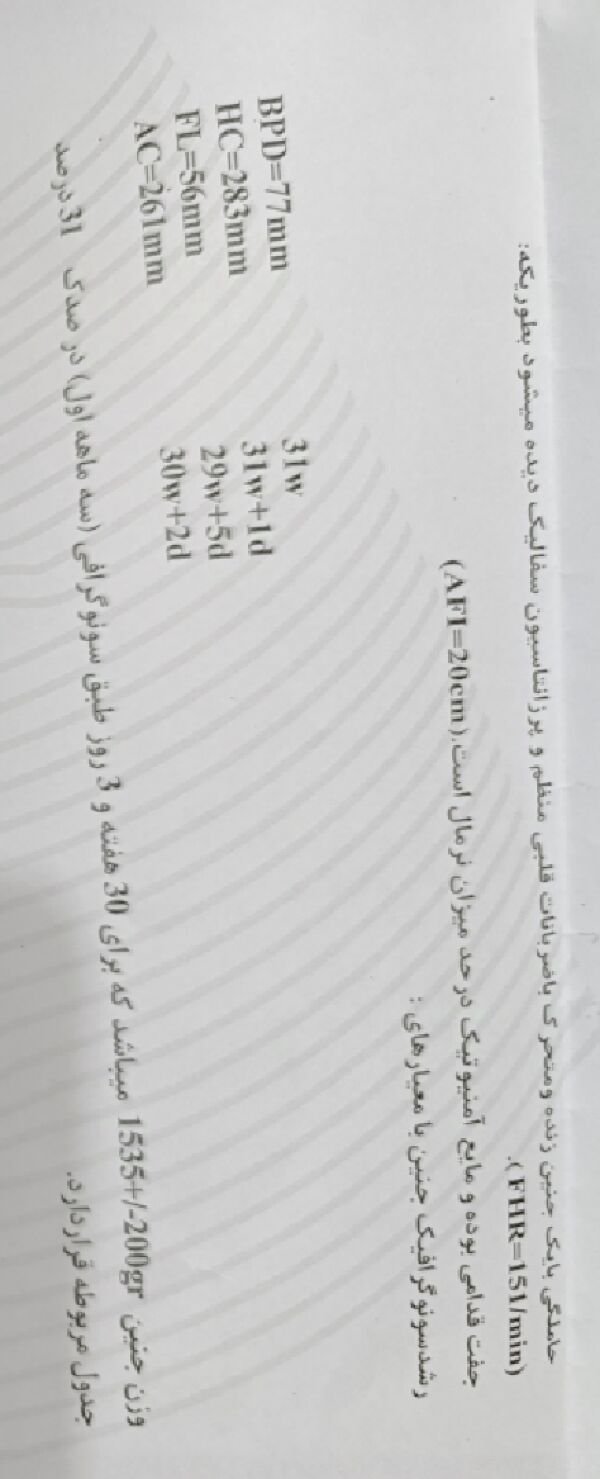 حاملگی بایک جنین زنده ومتحرک باضربانات قلبی منظم و پرزانتاسیون سفالیک دیده میشود بطوریکه:
(FHR=151/min).
جفت قدامی بوده و مایع آمنیوتیک درحد میزان نرمال است.(AFI=20cm)
رشدسونوگرافیک جنین با معیارهای :
BPD=77mm 31w
HC=283mm 31w+1d
FL=56mm 29w+5d
AC=261mm 30w+2d
وزن جنین 1535+/-200gr میباشد که برای 30 هفته و 3 روز طبق سونوگرافی (سه ماهه اول) در صدک 31 درصد
جدول مربوطه قراردارد.